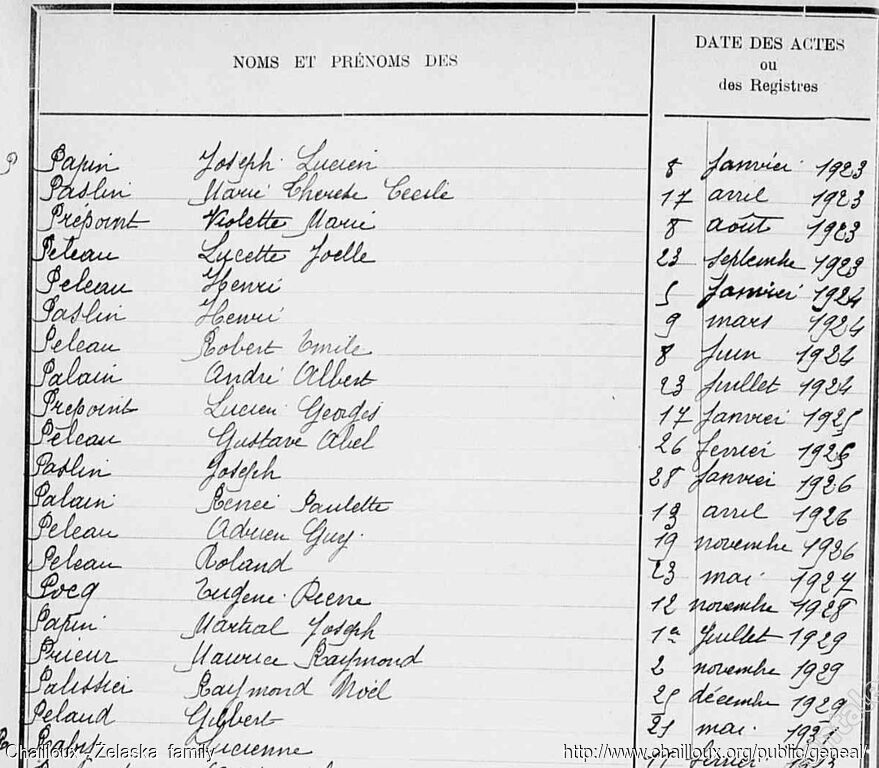 NOMS ET PRÉNOMS DES
DATE DES ACTES
ou
des Registres
P
Papin Joseph Lucien 8 Janvier 1923
Paslin Marie Therese Cecile 17 avril 1923
Prepoint Violette Marie 8 août 1923
Peleau Lucette Joelle 23 septembre 1923
Peleau Henri 5 Janvier 1924
Paslin Henri 9 mars 1924
Peleau Robert Emile 8 Juin 1924
Palain André Albert 23 Juillet 1924
Prepoint Lucien Georges 17 Janvier 1925
Peleau Gustave Abel 26 fevrier 1925
Paslin Joseph 28 Janvier 1926
Palain Renée Paulette 13 avril 1926
Peleau Adrien Guy 19 novembre 1926
Peleau Roland 23 mai 1927
Pocq Eugene Pierre 12 novembre 1928
Papin Martial Joseph 1er Juillet 1929
Prieur Maurice Raymond 2 novembre 1929
Palissier Raymond Noël 25 décembre 1929
Pelaud Gilbert 21 mai
Lucienne
Chailloux - Zelaska family
http://www.chailloux.org/public/geneal/